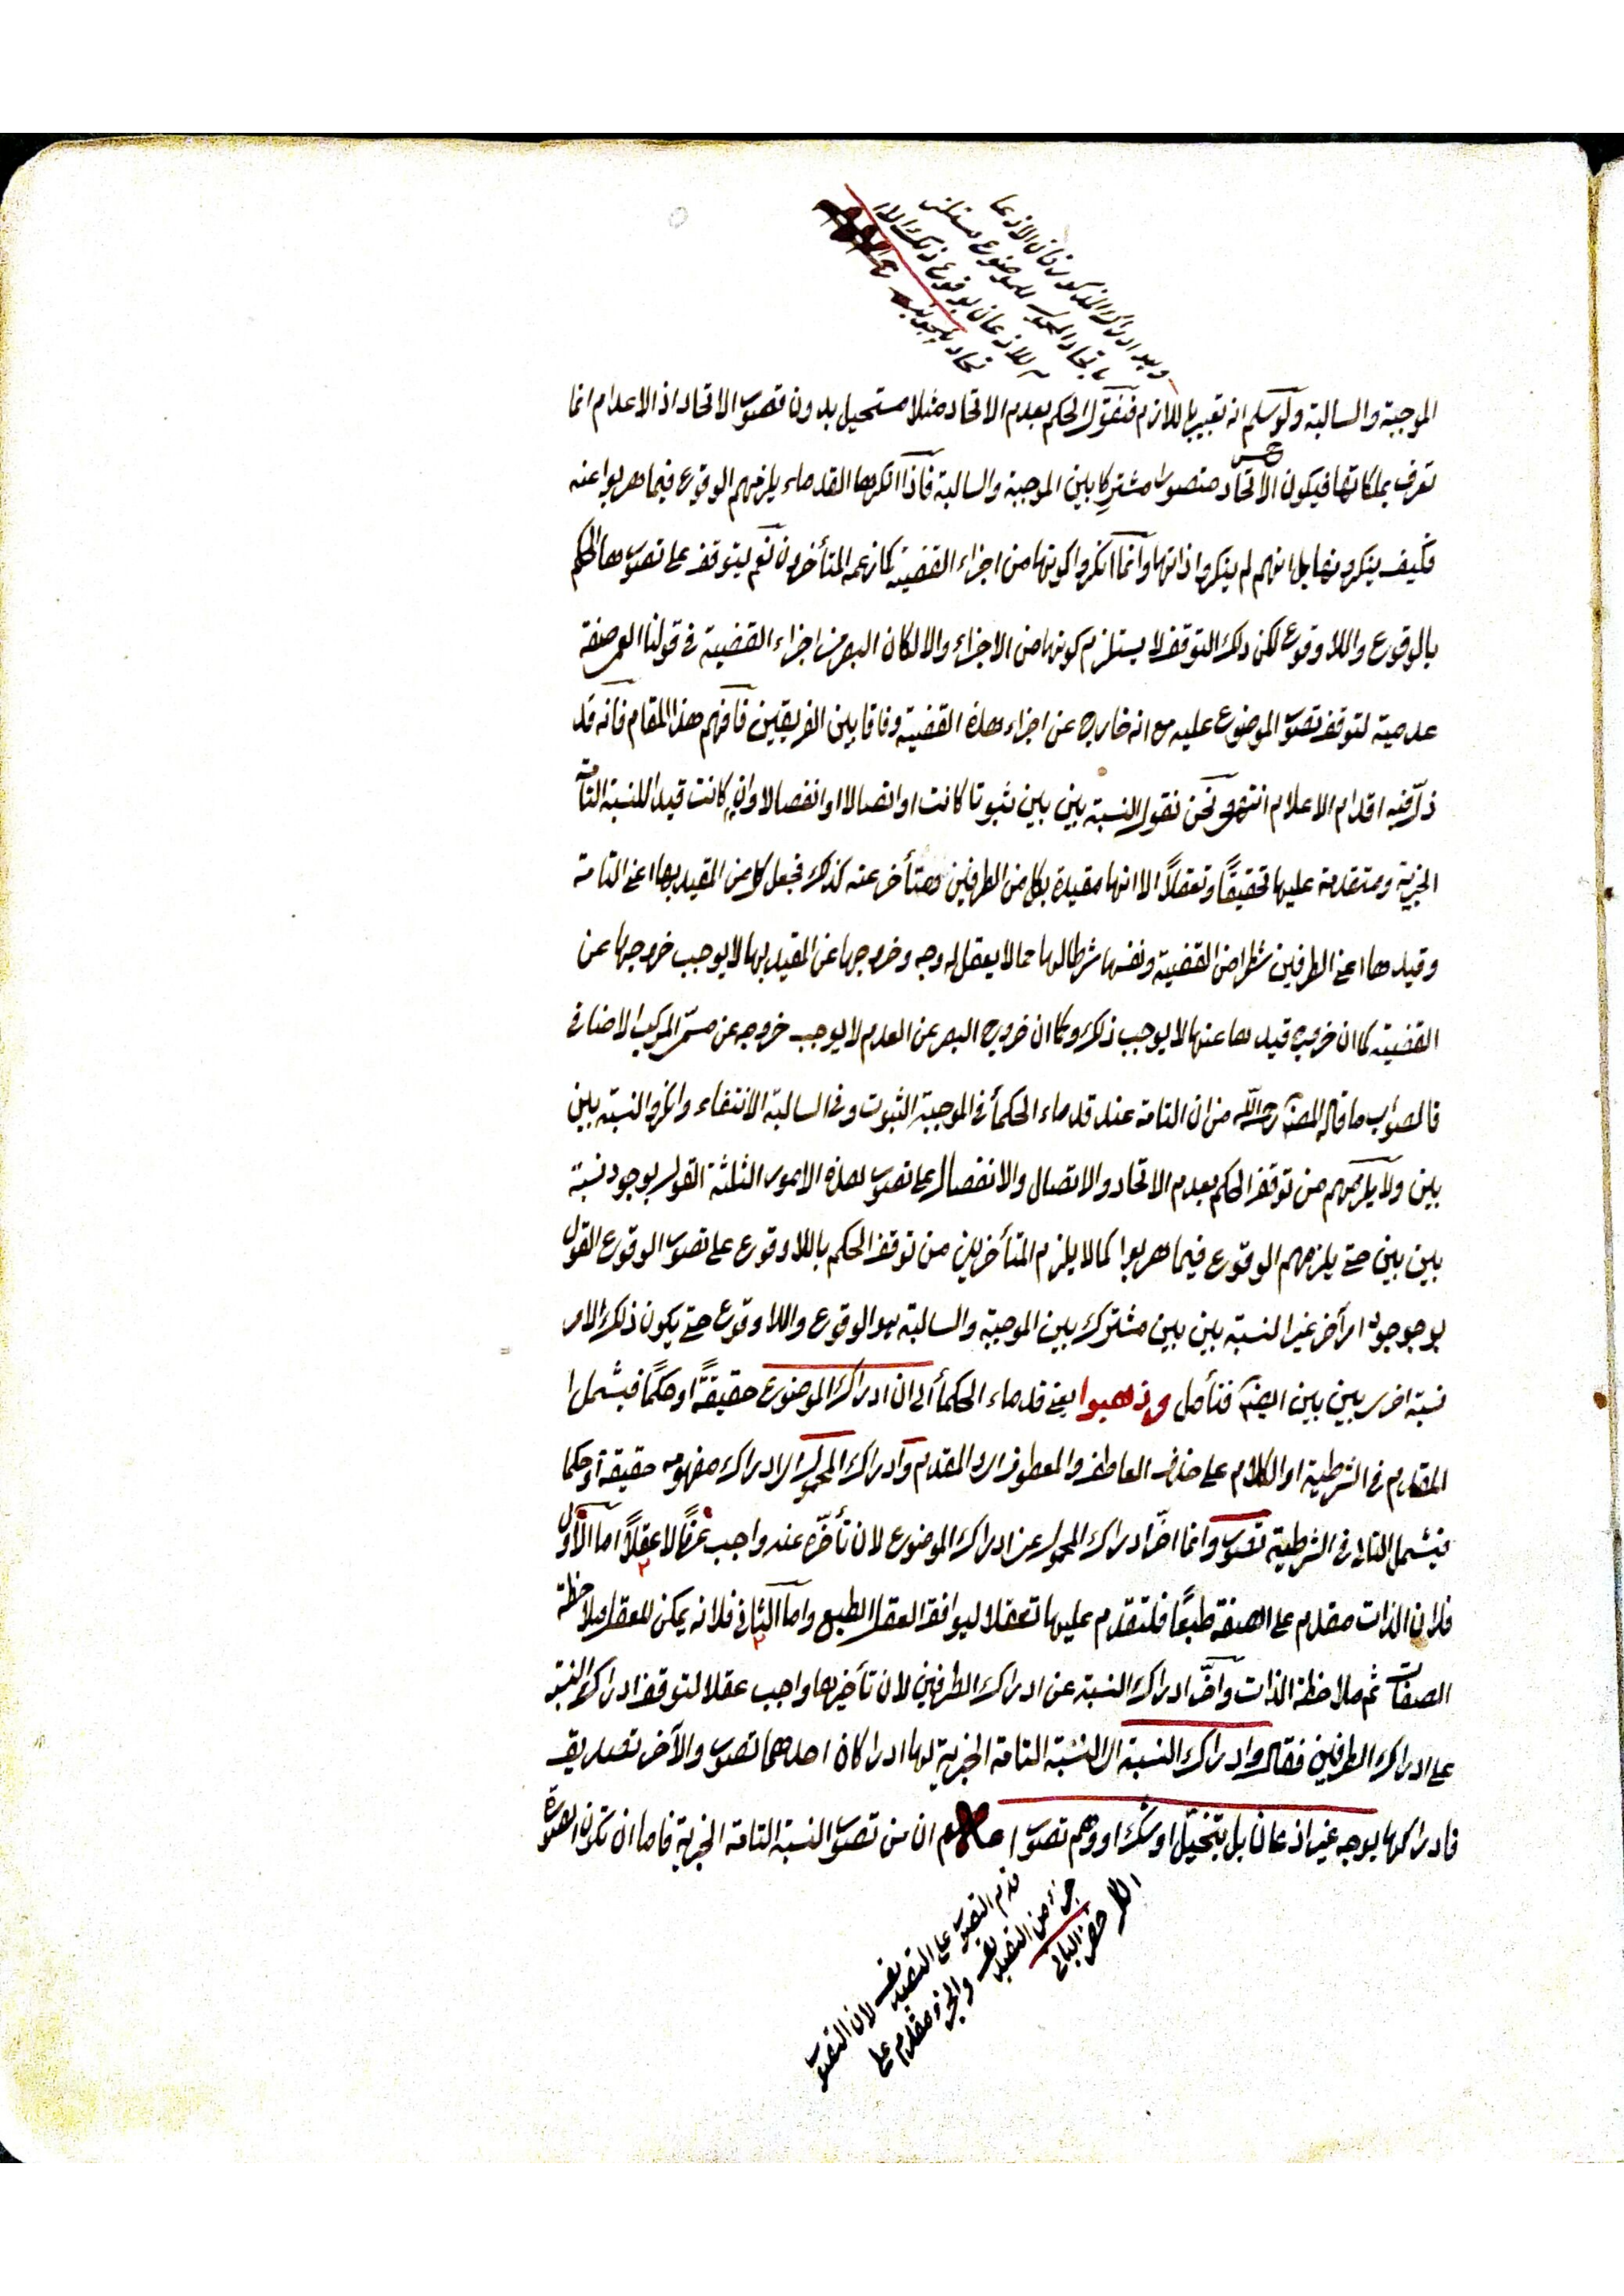 ويعد ادراك المذكور فان الاذعا
باتحاد المحمول للموضوع مستلز
للاذعان بوقوع ذلك الا
تحاد
الموجبة والسالبة ولو سلم انه تعبير باللازم فنقول الحكم بعدم الاتحاد مثلا مستحيل بدون تصور الاتحاد اذ الاعدام انما
تعرف بملكاتها فيكون الاتحاد متصورا مشتركا بين الموجبة والسالبة فاذا انكرها القدماء يلزمهم الوقوع فيما هربوا عنه
فكيف ينكرونها بل انهم لم ينكروا ذاتها وانما انكروا كونها من اجزاء القضية كما زعمه المتأخرون نعم يتوقف على تصورها الحكم
بالوقوع واللا وقوع لكن ذلك التوقف لا يستلزم كونها من الاجزاء والا لكان البصر من اجزاء القضية في قولنا العمى صفة
عدمية لتوقف تصور الموضوع عليه مع انه خارج عن اجزاء هذه القضية وفاقا بين الفريقين فافهم هذا المقام فانه قد
زل فيه اقدام الاعلام انتهى ونحن نقول النسبة بين بين ثبوتا كانت او اتصالا او انفصالا وان كانت قيدا للنسبة التامة
الخبرية ومتقدمة عليها تحقيقًا وتعقلاً الا انها مقيدة بكل من الطرفين ومتأخر عنه كذلك فجعل كل من المقيد بها اعنى التامة
وقيدها اعنى الطرفين شطرا من القضية ونفسها شرطا لها مما لا يعقل له وجه وخروجها عن المقيد بها لا يوجب خروجها عن
القضية كما ان خروج قيدها عنها لا يوجب ذلك وكما ان خروج البصر عن العدم لا يوجب خروجه عن مسمى المركب الاضافى
فالصواب ما قاله المصنف رحمه الله من ان التامة عند قدماء الحكمأ في الموجبة الثبوت وفي السالبة الانتفاء وانكروا النسبة بين
بين ولا يلزمهم من توقف الحكم بعدم الاتحاد والاتصال والانفصال على تصور هذه الامور الثلثة القول بوجود نسبة
بين بين حتى يلزمهم الوقوع فيما هربوا كما لا يلزم المتأخرين من توقف الحكم باللاوقوع على تصور الوقوع القول
بوجوجود امر آخر غير النسبة بين بين مشترك بين الموجبة والسالبة هو الوقوع واللا وقوع حتى يكون ذلك الامر
نسبة اخرى بين بين ايضا فتأمل وذهبوا يعنى قدماء الحكمأ الى ان ادراك الموضوع حقيقةً او حكمًا فيشمل ا
المقدم في الشرطية او الكلام على حذف العاطف والمعطوف اى والمقدم وادراك المحمول اى ادراك مفهومه حقيقة او حكما
فيشمل التالى في الشرطية تصور وانما اخر ادراك المحمول عن ادراك الموضوع لان تأخره عنه واجب عرفًا لا عقلاً اما الاول
فلان الذات مقدم على الصفة طبعًا فلتقدم عليها تعقلا ليوافق العقل الطبع واما الثانى فلانه يمكن للعقل ملاحظة
الصفات ثم ملاحظة الذات واخر ادراك النسبة عن ادراك الطرفين لان تأخيرها واجب عقلا لتوقف ادراك النسبة
على ادراك الطرفين فقال وادراك النسبة اى النسبة التامة الخبرية لها ادراكان احدهما تصور والآخر تصديق
فادراكها بوجه غير اذعان بل بتخيل او شك او وهم تصور اعلم ان من تصور النسبة التامة الخبرية فاما ان تكون الصورة
قدم التصور على التصديق لان التصور
جزء من التصديق والجزء مقدم على
الكل